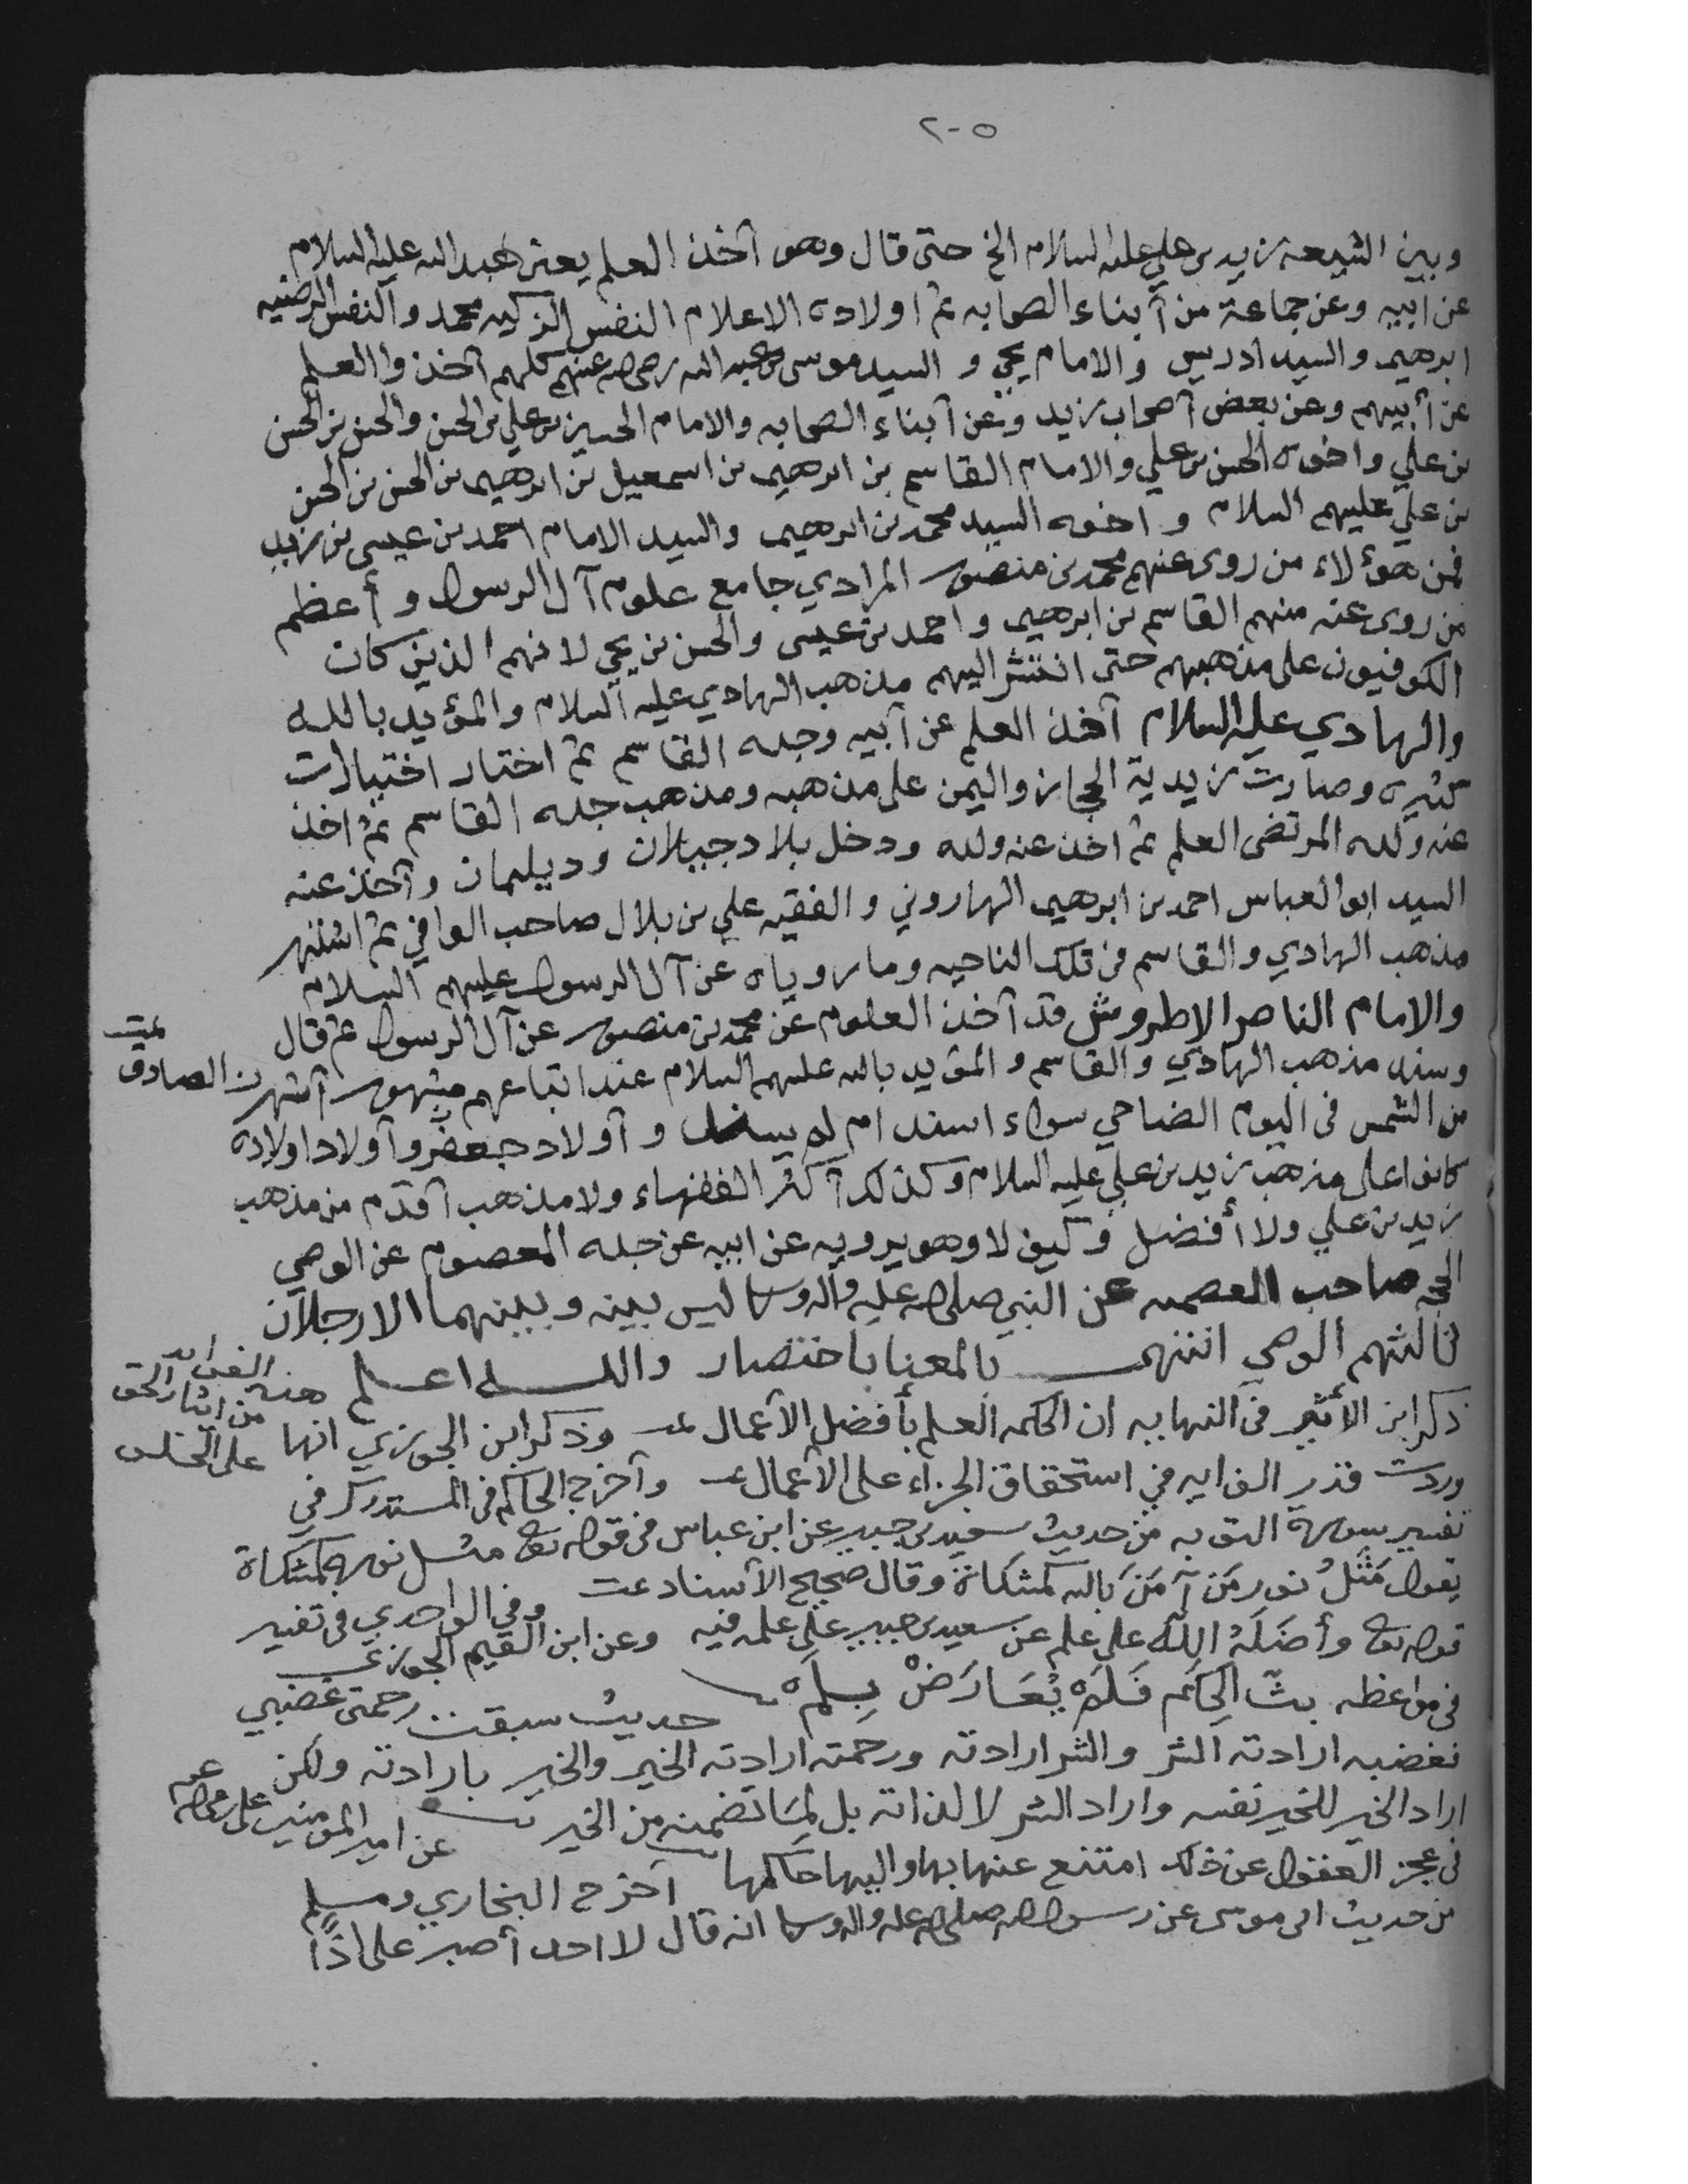 ٢٠٥
وبين الشيعة زيد بن علي عليه السلام الخ حتى قال وهو آخذ العلم يعني عبدالله عليه السلام
عن ابيه وعن جماعة من أبناء الصحابه ثم اولاده الاعلام النفس الزكيه محمد والنفس الرضيه
ابرهيم والسيد ادريس والامام يحيى والسيد موسى بن عبدالله رضي الله عنهم كلهم آخذوا العلم
عن أبيهم وعن بعض آصحاب زيد وعن آبناء الصحابه والامام الحسين بن علي بن الحسن والحسن بن الحسن
بن علي واخوه الحسن بن علي والامام القاسم بن ابرهيم بن اسمعيل بن ابرهيم بن الحسن بن الحسن
بن علي عليهم السلام وآخوه السيد محمد بن ابرهيم والسيد الامام احمد بن عيسى بن زيد
فمن هؤلاء من روى عنهم محمد بن منصور المرادي جامع علوم آل الرسول وأعظم
من روى عنه منهم القاسم بن ابرهيم واحمد بن عيسى والحسن بن يحيى لانهم الذين كان
الكوفيون على مذهبهم حتى انتشر اليهم مذهب الهادي عليه السلام والمؤيد بالله
والهادي عليه السلام آخذ العلم عن آبيه وجده القاسم ثم اختار اختيارات
كثيره وصارت زيدية الحجاز واليمن على مذهبه ومذهب جده القاسم ثم اخذ
عنه ولده المرتضى العلم ثم اخذ عنه ولده ودخل بلاد جيلان وديلمان وآخذ عنه
السيد ابوالعباس احمد بن ابرهيم الهاروني والفقيه علي بن بلال صاحب الوافي ثم اشتهر
مذهب الهادي والقاسم في تلك الناحيه وما روياه عن آل الرسول عليهم السلام
والامام الناصر الاطروش قد آخذ العلوم عن محمد بن منصور عن آل الرسول ثم قال
وسند مذهب الهادي والقاسم والمؤيد بالله عليهم السلام عند اتباعهم مشهور آشهر
من الشمس في اليوم الضاحي سواء اسند ام لم يسند وآولاد جعفر الصادق وآولاد اولاده
كانوا على مذهب زيد بن علي عليه السلام وكذلك آكثر الفقهاء ولا مذهب آقدم من مذهب
زيد بن علي ولا أفضل وكيف لا وهو يرويه عن ابيه عن جده المعصوم عن الوصي
الحجه صاحب العصمه عن النبي صلى الله عليه وآله وسلم ليس بينه وبينهما الا رجلان
ثالثهم الوصي انتهى بالمعنا باختصار والله اعلم
ذكر ابن الأثير في النهايه ان الحكمه العلم بأفضل الآعمال وذكر ابن الجوزي انها
وردت قدر الفرايه في استحقاق الجزاء على الآعمال وآخرج الحاكم في المستدرك في
من ايثار الحق على الخلق
تفسير سورة التوبه من حديث سعيد بن جبير عن ابن عباس في قوله تعالى مثل نوره كمشكاة
يقول مَثَلُ نور مَن آمَنَ بالله كمشكاة وقال صحيح الآسناد وفي الواحدي في تفسير
قوله تعالى وأضَلَّهُ اللّه على علم عن سعيد بن جبير على علمه فيه وعن ابن القيم الجوزي
في مواعظه بثّ الحِكَم فَلَمْ يُعَارَضْ بِلِمَ حديث سبقت رحمتي غضبي
فغضبه ارادته الشر والشر ارادته ورحمته ارادته الخير والخير بارادته ولكن
اراد الخير للخير نفسه واراد الشر لا لذاته بل لِمَا تضمنه من الخير عن امير المؤمنين علي رضي الله عنه
في عجز العقول عن ذلك امتنع عنها بها واليها حاكمها آخرج البخاري ومسلم
من حديث ابي موسى عن رسول الله صلى الله عليه وآله وسلم انه قال لا احد أصبر على اذًا